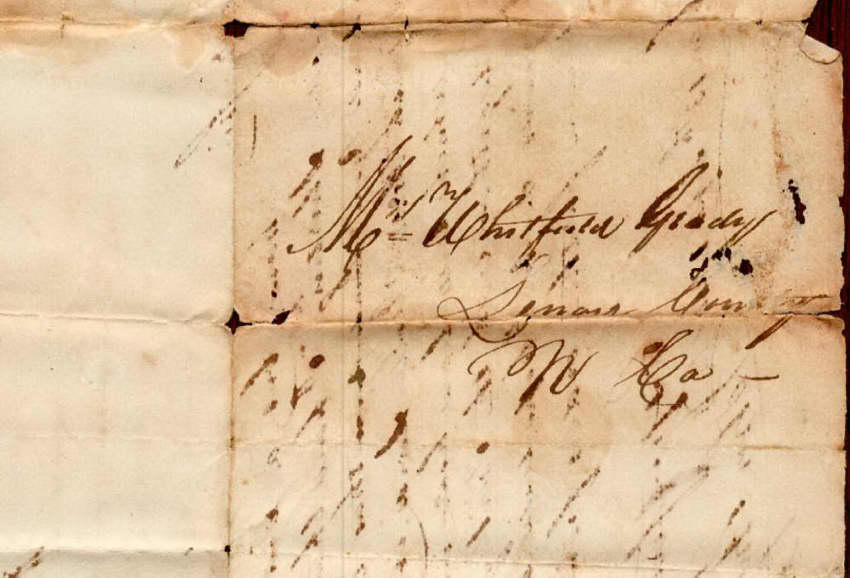 Mr Whitfield Grady
Lenoir County
N Ca